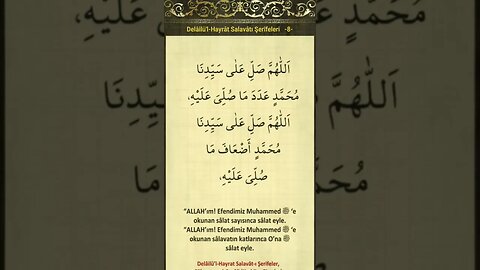 Delâilü'l-Hayrât Salavâtı Şerifeleri -8-
اَللّٰهُمَّ صَلِّ عَلٰى سَيِّدِنَا
مُحَمَّدٍ عَدَدَ مَا صُلِّىَ عَلَيْهِ،
اَللّٰهُمَّ صَلِّ عَلٰى سَيِّدِنَا
مُحَمَّدٍ أَضْعَافَ مَا
صُلِّىَ عَلَيْهِ،
"ALLAH'ım! Efendimiz Muhammed ﷺ 'e
okunan sâlat sayısınca sâlat eyle.
"ALLAH'ım! Efendimiz Muhammed ﷺ 'e
okunan sâlavatın katlarınca O'na ﷺ
sâlat eyle.
Delâilü'l-Hayrat Salavât-ı Şerifeler,